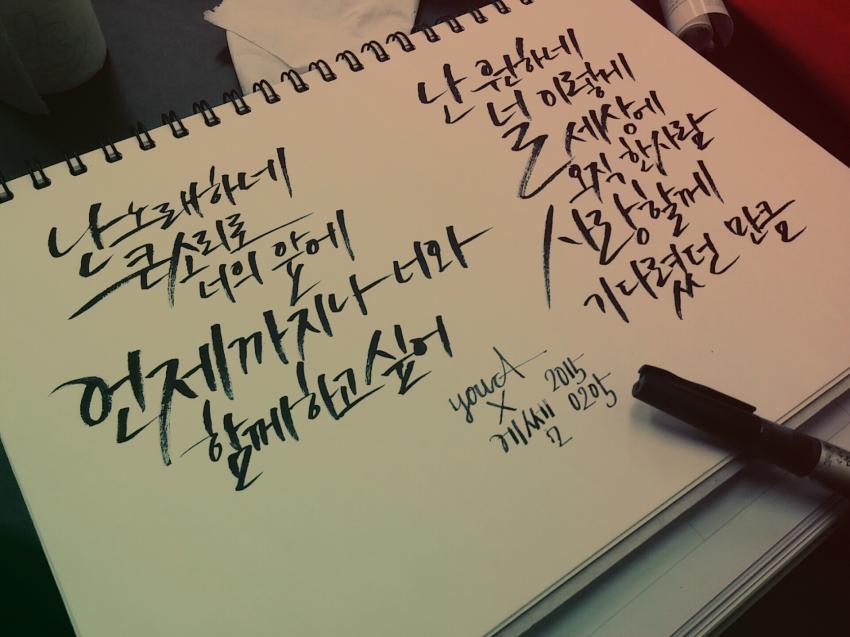 난 노래하네
큰 소리로
너의 앞에
언제까지나 너와
함께하고 싶어
난 원하네
널 이렇게
세상에
오직 한사람
사랑할께
기다렸던 만큼
yourA
X
예쎌
2015
0205